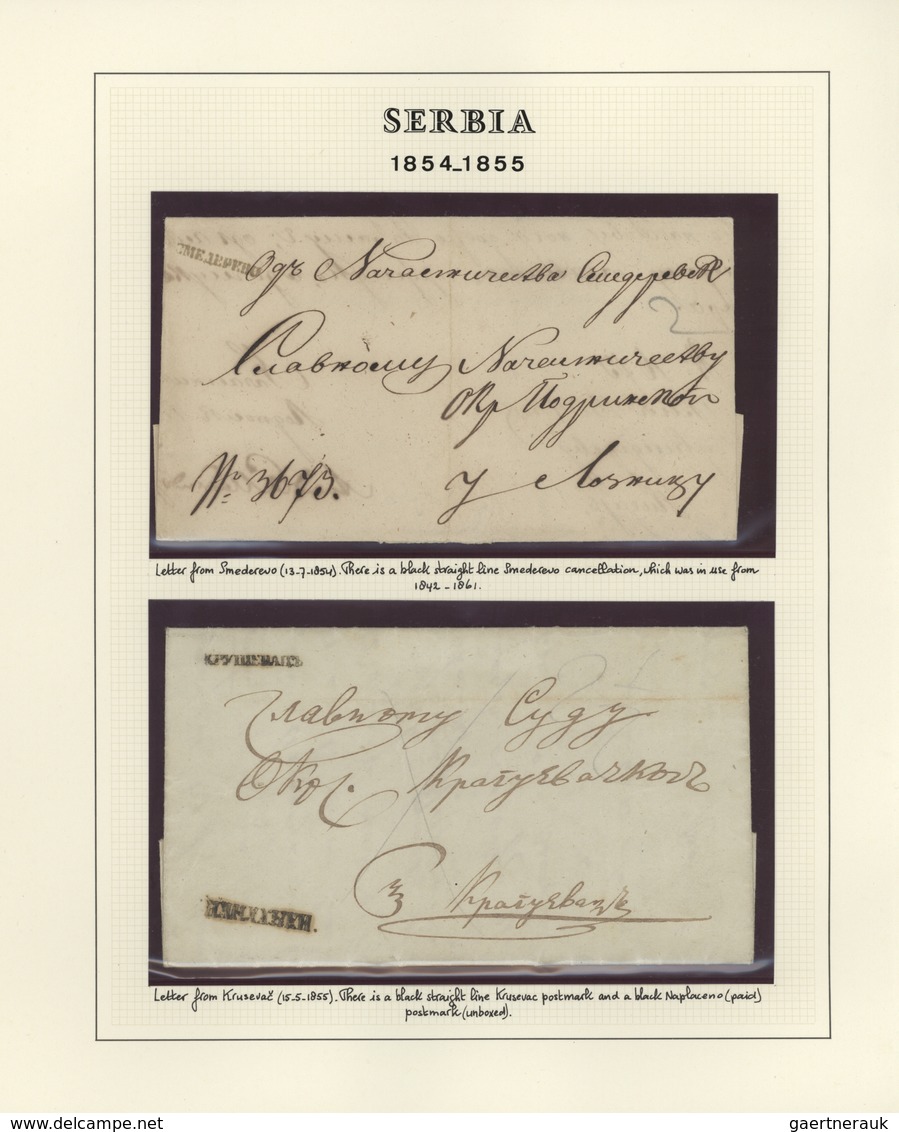 SERBIA
1854-1855
СМЕДЕРЕВО
Одъ Началничества Смедеревск
2
Славному Началничеству
Окр Подринскогъ
№ 3673.
у Лозницу
Letter from Smederevo (13-7-1854). There is a black straight line Smederevo cancellation, which was in use from
1842 - 1861.
КРУШЕВАЦЪ
Главному Суду
Окр. Крагуевачкомъ
у Крагуевацъ
Letter from Krusevač (15-5-1855). There is a black straight line Krusevac postmark and a black Naplaceno (paid)
postmark (unboxed).
www.delcampe.net
gaertnerauk